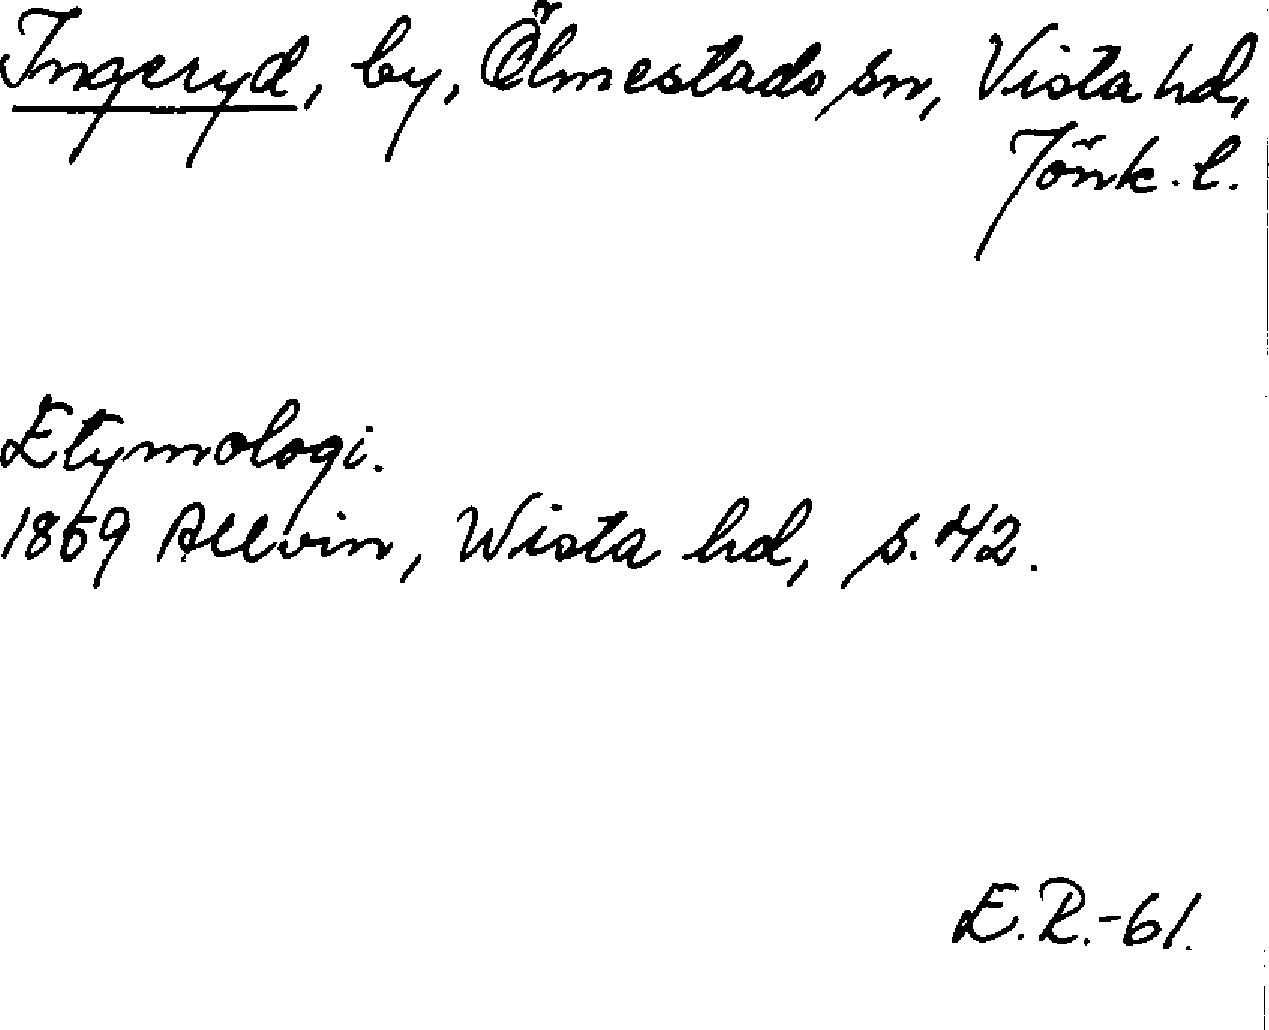 Ingeryd, by, Ölmestads sn, Vista hd,
Jönk. l.
Etymologi.
1869 Allvin, Wista hd, s. 42.
E.R.-61.